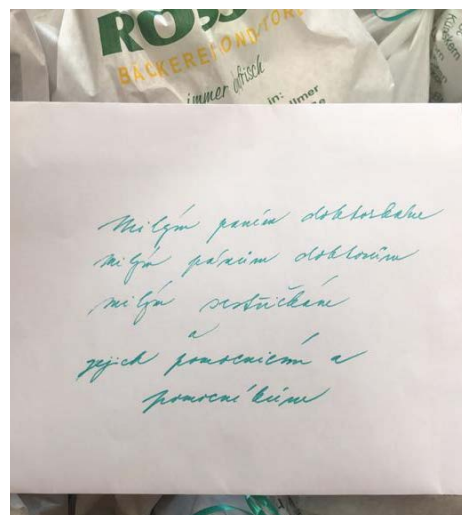 ROSS
BÄCKEREI
immer frisch
in:
Milým paním doktorkám
milým pánům doktorům
milým sestřičkám
a
jejich pomocnicím a
pomocníkům